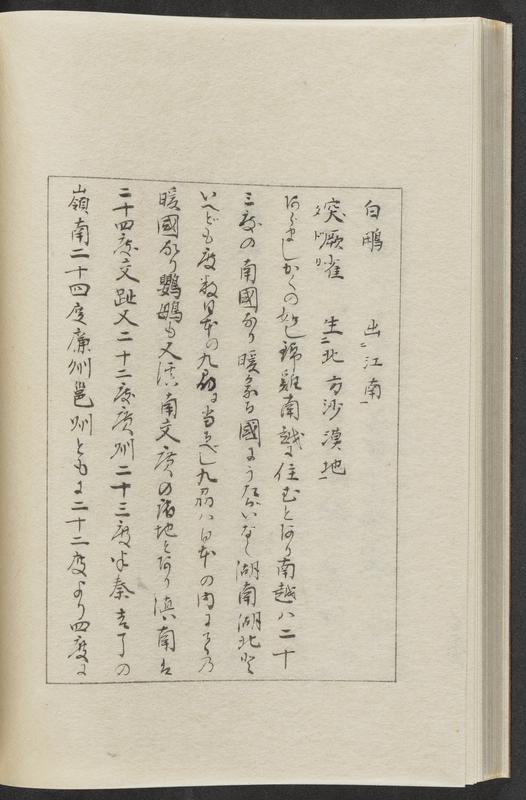 白鷳 出江南
突厥雀 生北方沙漠地
あらましかくの如し錦雞南越に住むとあり南越ハ二十
三度の南國なり暖気なる國にうたがいなし湖南湖北と
いへども度数日本の九州に当るべし九州ハ日本の内にての
暖國なり鸚鵡も又滇南交廣の諸地とあり滇南は
二十四度交趾又二十二度廣州二十三度半秦吉了の
嶺南二十四度廉州邕州ともに二十二度より四度に